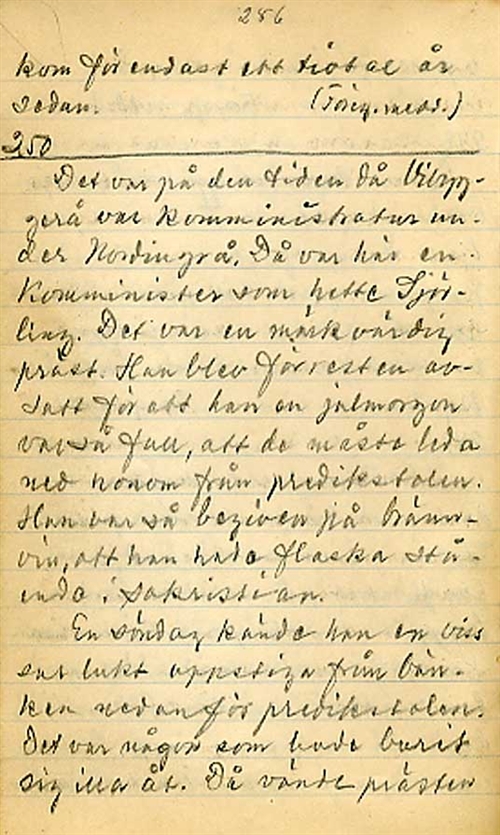 286
kom för endast ett tiotal år
sedan. (Föreg. medd.)
250
Det var på den tiden då Vibyg-
gerå var komministratur un-
der Nordingrå. Då var här en
komminister som hette Sjör-
ling. Det var en märkvärdig
präst. Han blev förresten av-
satt för att han en julmorgon
var så full, att de måste leda
ned honom från predikstolen.
Han var så begiven på bränn-
vin, att han hade flaska stå-
ende i sakristian.
En söndag kände han en viss
sur lukt uppstiga från bän-
ken nedanför predikstolen.
Det var någon som hade burit
sig illa åt. Då vände prästen